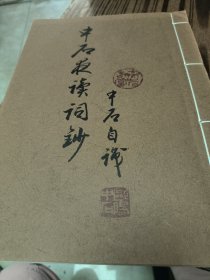 中石夜读词钞
中石自识